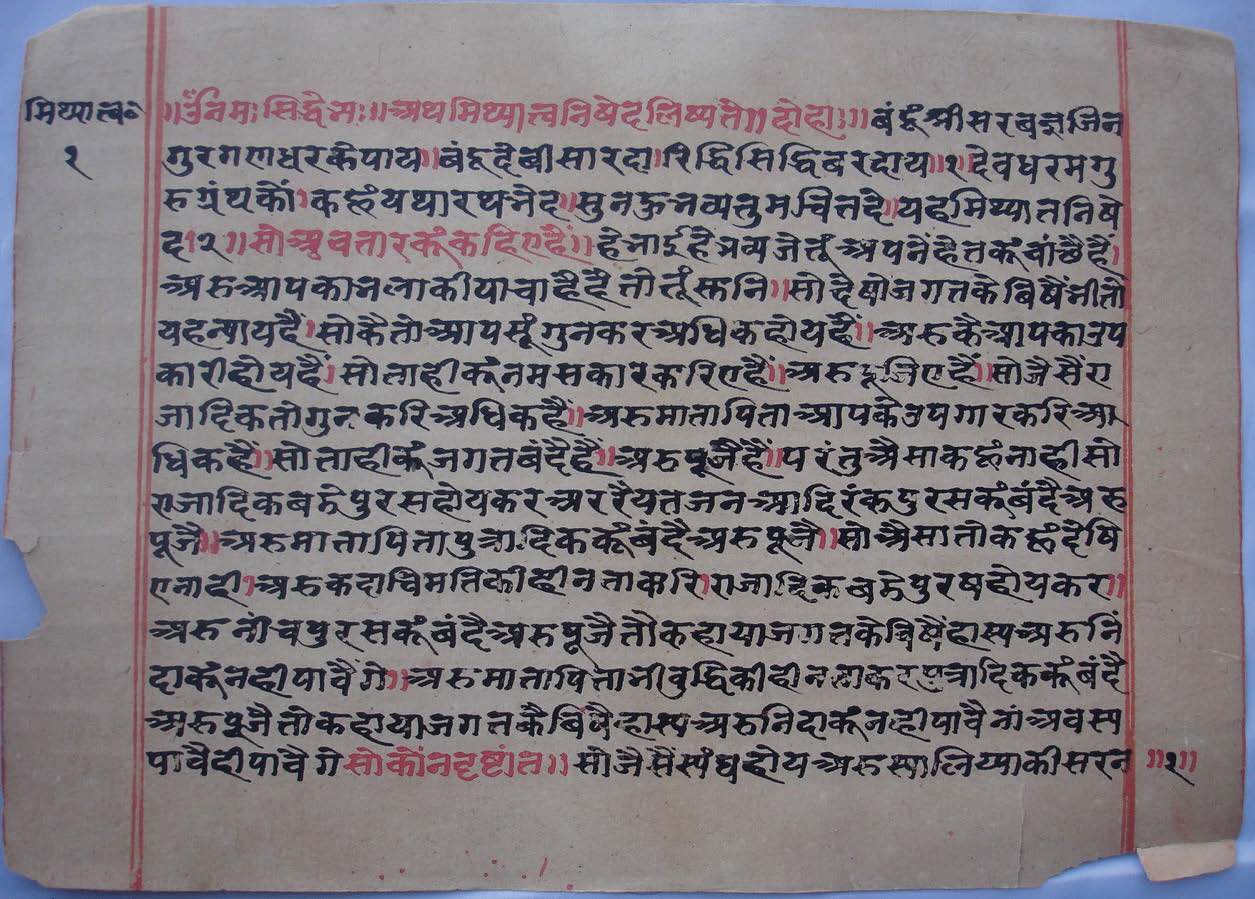 मिथ्यात्व०
१
॥ॐनमः सिद्धेभ्यः॥अथमिथ्यात्वनिषेदलिष्यते॥दोहाः॥बंदूंश्रीसरवज्ञजिन
गुरगणधरकेपाय॥बंदूंदेबीसारदा।रिद्धिसिद्धिबरदाय॥१॥देवधरमगु
रुग्रंथकौं।कह्हूंयथारथभेद॥सुनऊभव्यतुमचितदे॥यहमिथ्यातनिषे
द।२॥सोश्रुवतारकूंकहिएहैं॥हेभाईहेभव्यजेतूंअपनेंहेतकूंवांछैहैं।
अरुआपकाभलाकीयाचाहैहैतोतूंसुनि॥सोदेषोजगतकेबिषैंभीतो
यहन्यायहैं।सोकैतोआपसूंगुनकरअधिकहोयहैं॥अरुकैआपकाउप
कारीहोयहैं।सोताहीकूंनमसकारकरिएहैं॥अरुपूजिएहैं॥सोजैसैंरा
जादिकतोगुनकरिअधिकहैं॥अरुमातापिताआपकेउपगारकरिअ
धिकहैं॥सोताहीकूंजगतबंदैहैं॥अरुपूजैंहैं॥परंतुअैसाकह्हूंनाहीसो
राजादिकबडेपुरसहोयकरअररैयतजनआदिरंकपुरसकूंबंदैअरु
पूजै॥अरुमातापितापुत्रादिककूंबंदैअरुपूजै॥सोअैसातोकह्हूंदेषि
एनाही।अरुकदाचिमतिकीहीनताकरि।राजादिकबडेपुरषहोयकर॥
अरुनीचपुरसकूंबंदैअरुपूजैतौकहायाजगतकेबिषैंहास्यअरुनिं
दाकूंनहीपावैंगे॥अरुमातापिताभीबुद्धिकीहीनताकरपुत्रादिककूंबंदै
अरुपूजैतोकहायाजगतकैबिषैहास्यअरुनिदाकूंनहीपावैगांअवस्य
पावैहीपावैगेसोकौंनदृष्टांत॥सोजैसैंस्यंघहोयअरुस्यालियाकीसरन
॥१॥